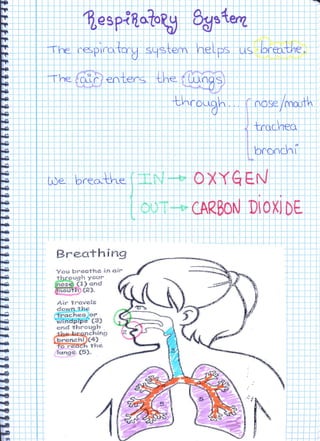 Respiratory System
The respiratory system helps us breathe.
The air enters the lungs
through... nose/mouth
trachea
bronchi
We breathe IN → OXYGEN
OUT → CARBON DIOXIDE
Breathing
You breathe in air
through your
nose (1) and
mouth (2).
Air travels
down the
trachea or
windpipe (3)
and through
the branching
bronchi (4)
to reach the
lungs (5).